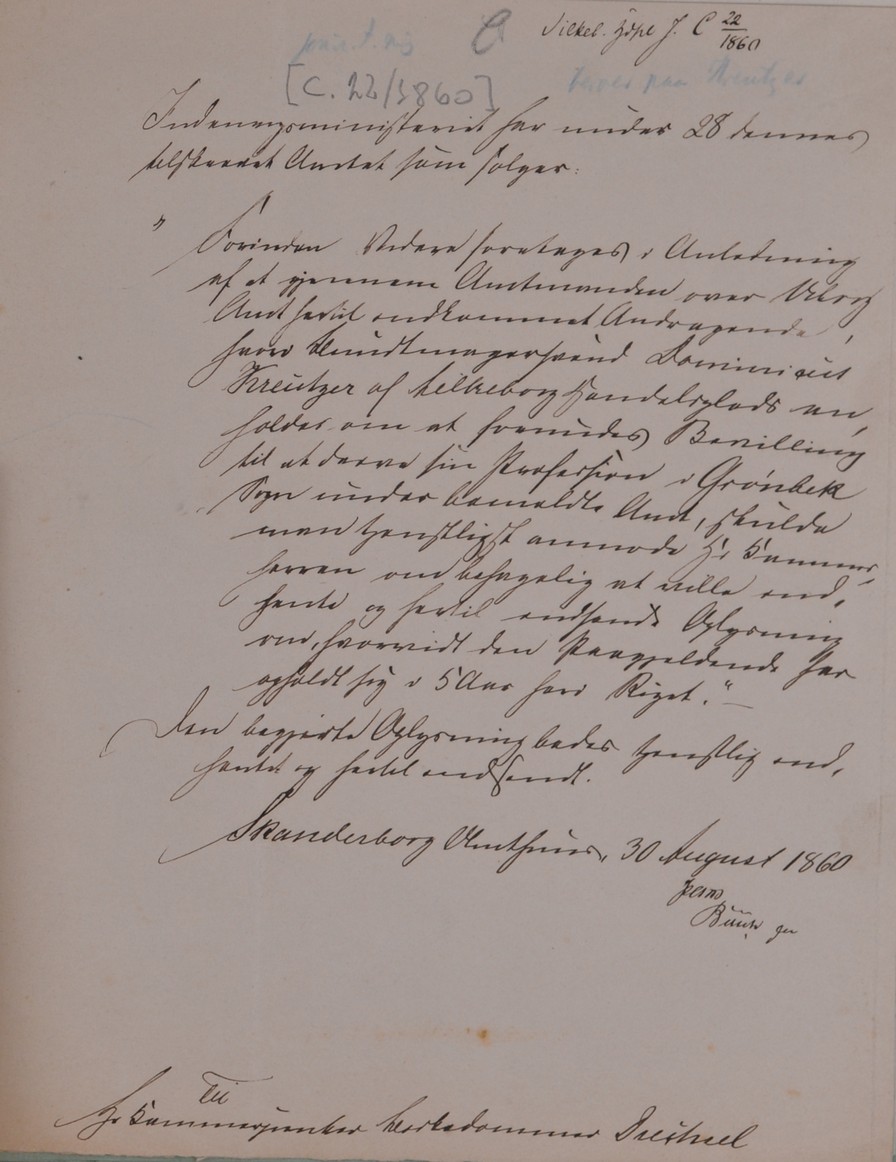 Silkeb. Hdpl J. C 22/1860
C
[C. 22/1860]
Indenrigsministeriet har under 28 dennes
tilskrevet Amtet som følger:
" Forinden Videre foretages i Anledning
af et gjennem Amtmanden over Viborg
Amt hertil indkommet Andragende,
hvori Bundtmagersvend Dominicus
Kreutzer af Silkeborg Handelsplads an,
holder om at forundes Bevilling
til at drive sin Profession i Grönbek
Sogn under bemeldte Amt, skulde
man tjenstligst anmode Hr Kammer,
herren om behagelig at ville ind,
hente og hertil indsende Oplysning
om, hvorvidt den Paagjeldende har
opholdt sig i 5 Aar her i Riget."
Den begjerte Oplysning bedes tjenstlig ind,
hentet og hertil indsendt.
Skanderborg Amthuus, 30 August 1860
Til
Hr Kammerjunker Birkedommer Drechsel